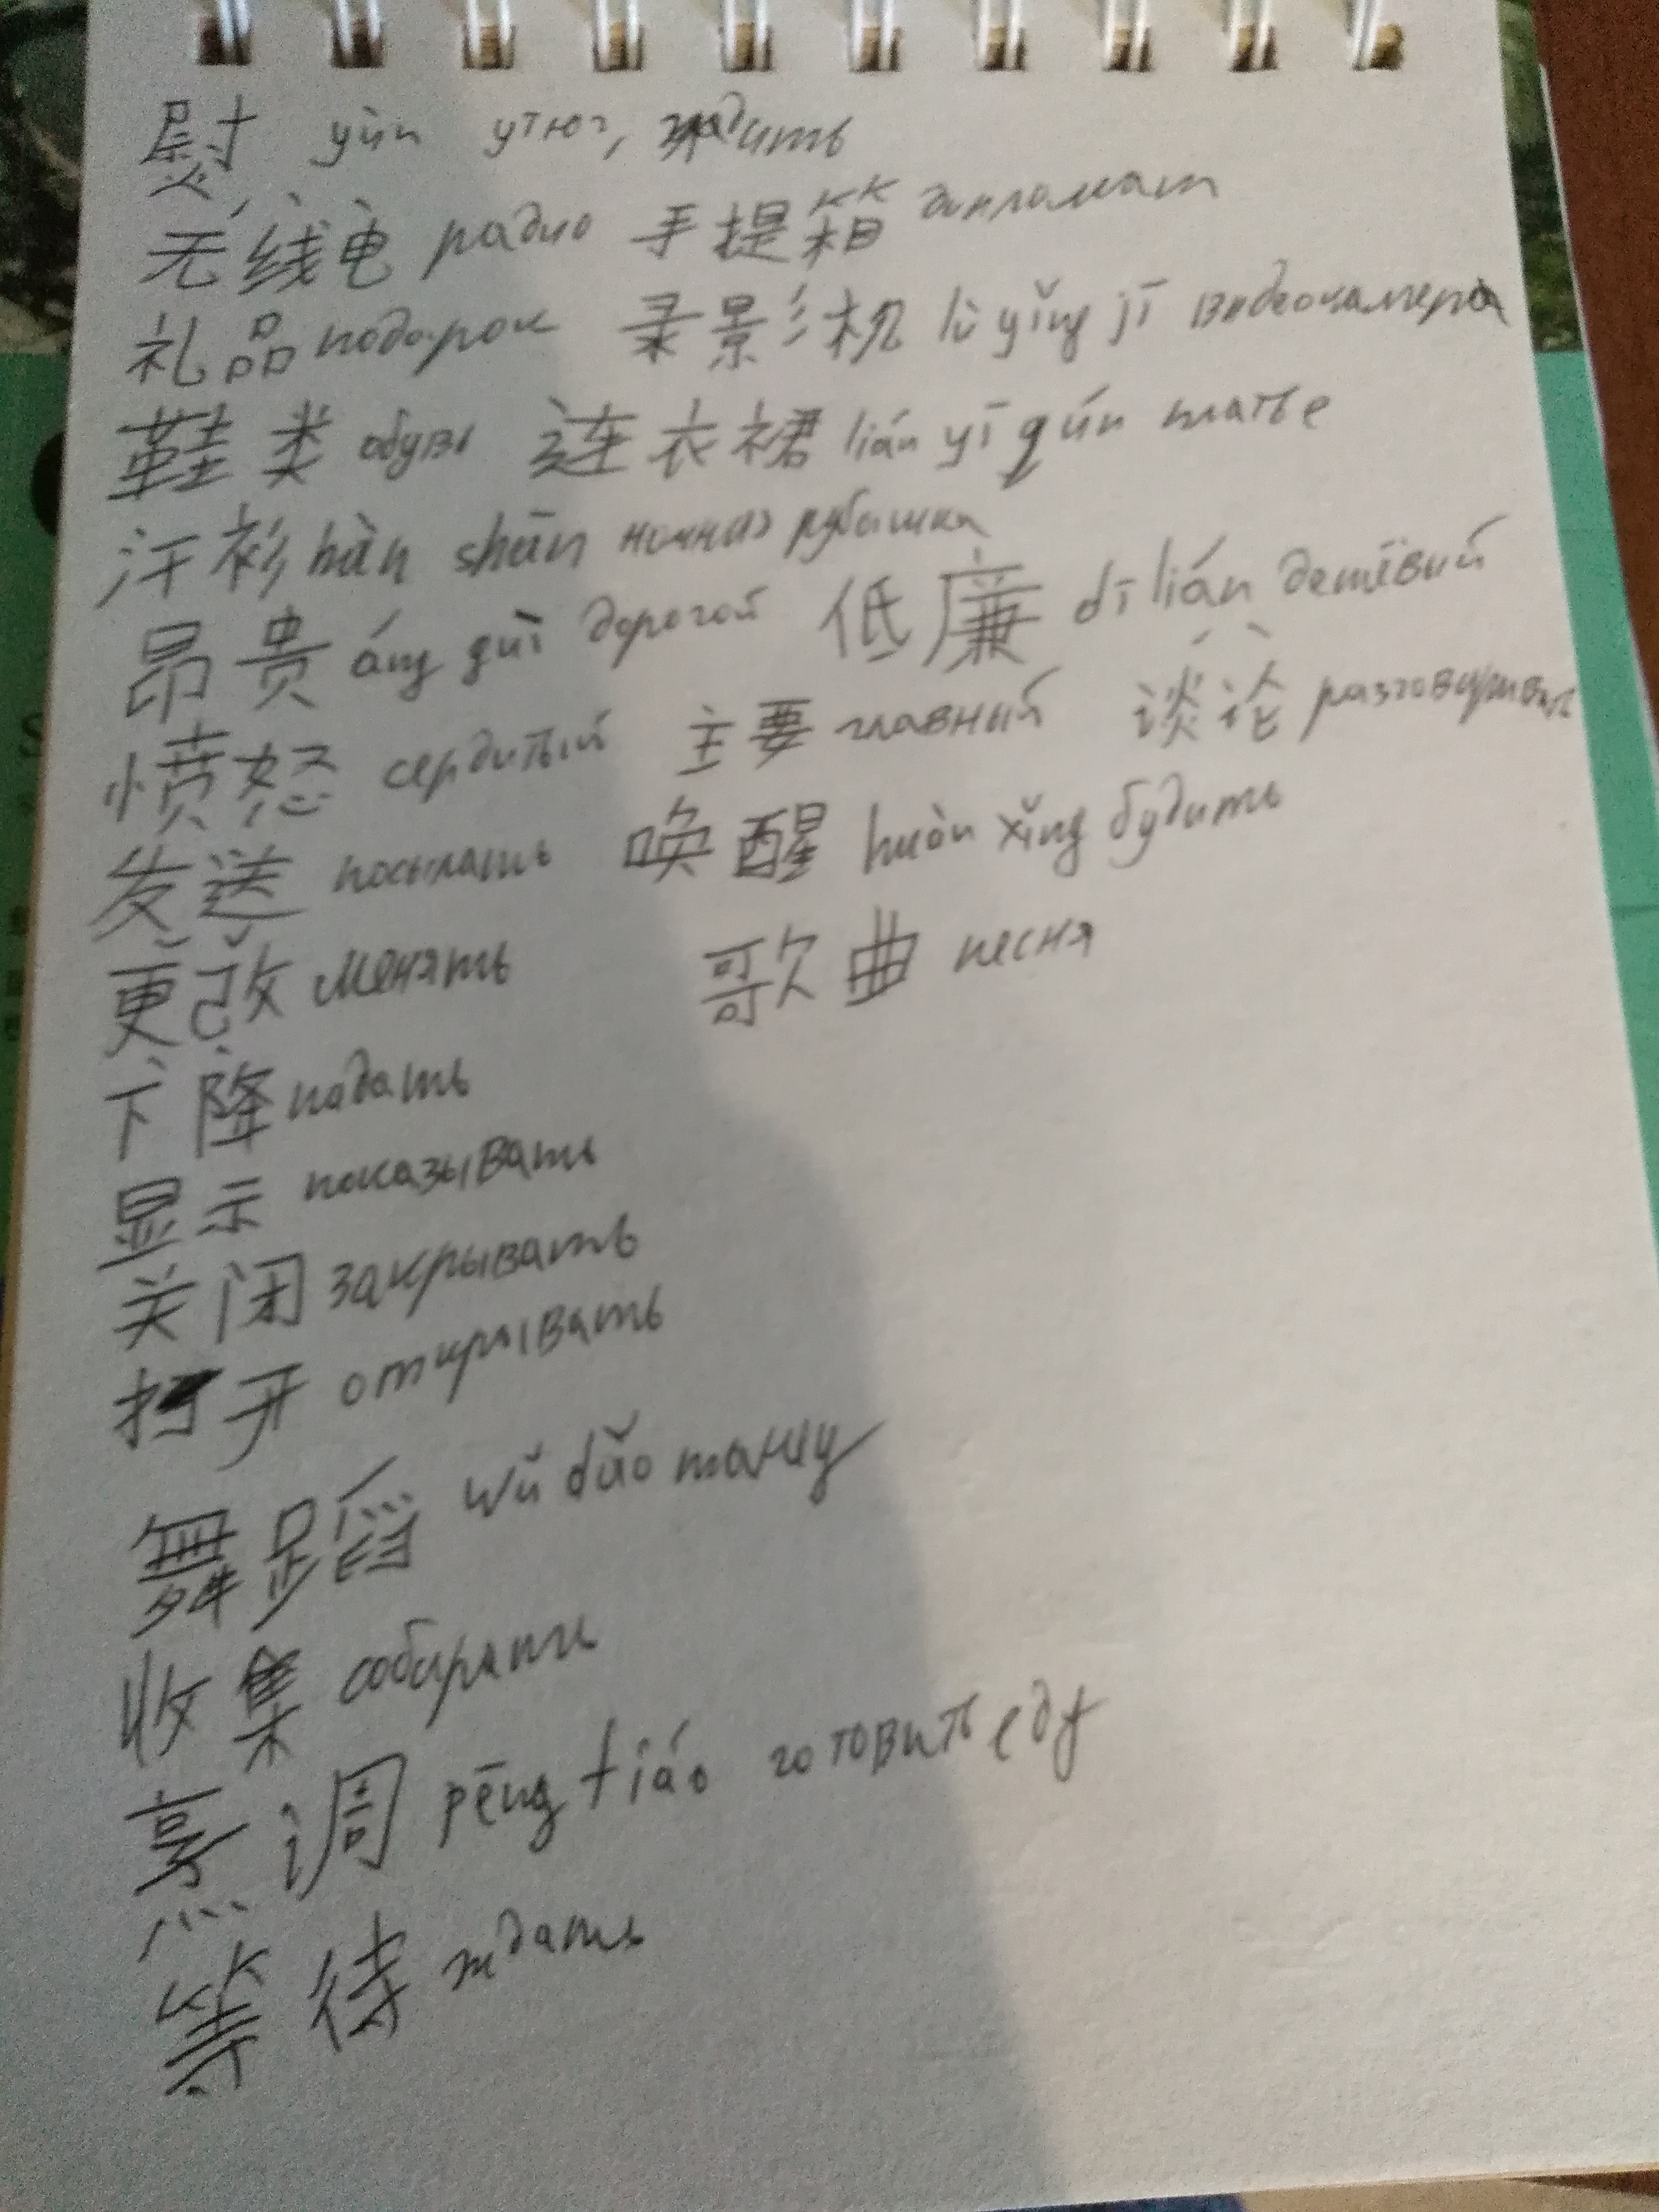 熨 yùn утюг, гладить
无线电 радио 手提箱 дипломат
礼品 подарок 录影机 lù yǐng jī видеокамера
鞋类 обувь 连衣裙 lián yī qún платье
汗衫 hàn shān ночная рубашка
昂贵 áng guì дорогой 低廉 dī lián дешёвый
愤怒 сердитый 主要 главный 谈论 разговаривать
发送 посылать 唤醒 huàn xǐng будить
更改 менять 歌曲 песня
下降 падать
显示 показывать
关闭 закрывать
打开 открывать
舞蹈 wǔ dǎo танец
收集 собирать
烹调 pēng tiáo готовить еду
等待 ждать